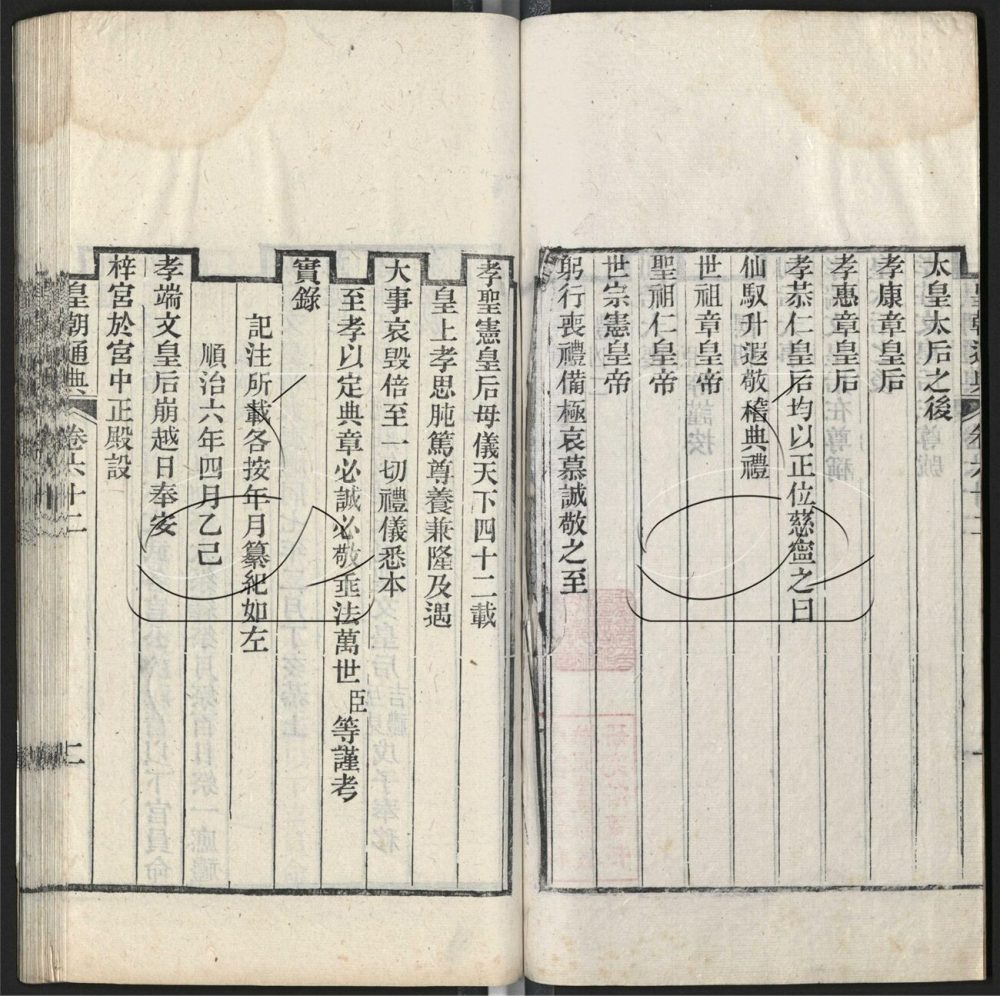 太皇太后之後
孝康章皇后
孝惠章皇后
孝恭仁皇后均以正位慈寧之日
仙馭升遐敬稽典禮
世祖章皇帝
聖祖仁皇帝
世宗憲皇帝
躬行喪禮備極哀慕誠敬之至
孝聖憲皇后母儀天下四十二載
皇上孝思肫篤尊養兼隆及遇
大事哀毀倍至一切禮儀悉本
至孝以定典章必誠必敬垂法萬世臣等謹考
實錄
記注所載各按年月纂紀如左
順治六年四月乙巳
孝端文皇后崩越日奉安
梓宮於宮中正殿設
皇朝通典
卷六十二